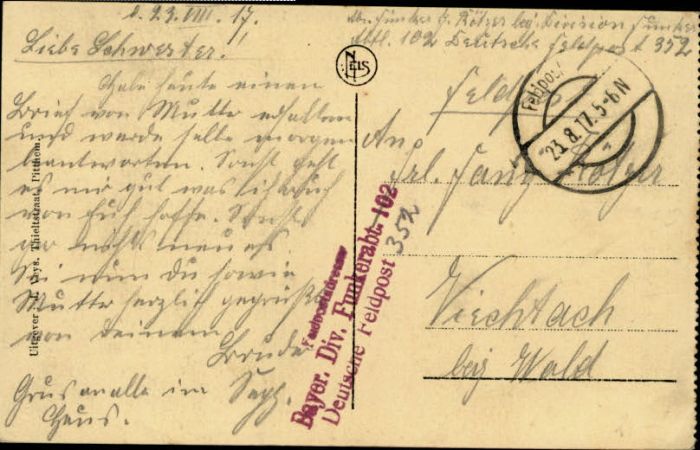 d. 23. VIII. 17.
Liebe Schwester.
Habe heute einen
Brief von Mutter erhalten
und werde selbe morgen
beantworten. Sonst geht
es mir gut was ich auch
von Euch hoffe. Sonst
gar nichts neues.
Sei nun Du sowie
Mutter herzlich gegrüßt
von deinem
Bruder
Sepp.
Grus an alle im
Haus.
Uitgever Thieltstraat, Pitthem
NELS
Abs. Funker J. bay. Division Funker
Abtl. 102 Deutsche Feldpost 352
Feldpost
Feldpost
23.8.17. 5-6 N
An
Frl. Fany
Viechtach
bay. Wald
Feldpostadresse
Bayer. Div. Funkerabt. 102
Deutsche Feldpost 352